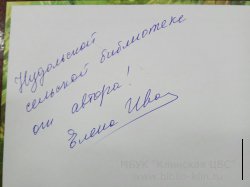 Нудольской
сельской библиотеке
от автора!
Елена Ива
МБУК "Клинская ЦБС"
www.biblio-klin.ru